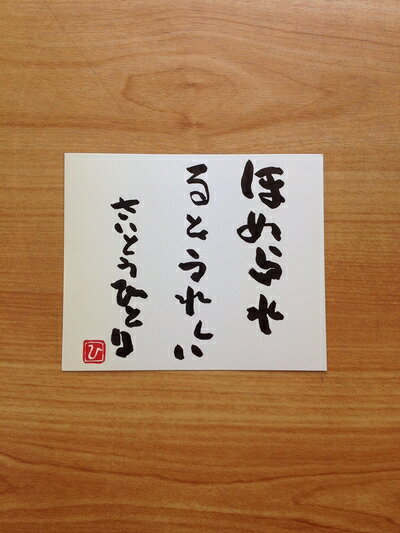 ほめられ
るとうれしい
さいとうひとり
ひ